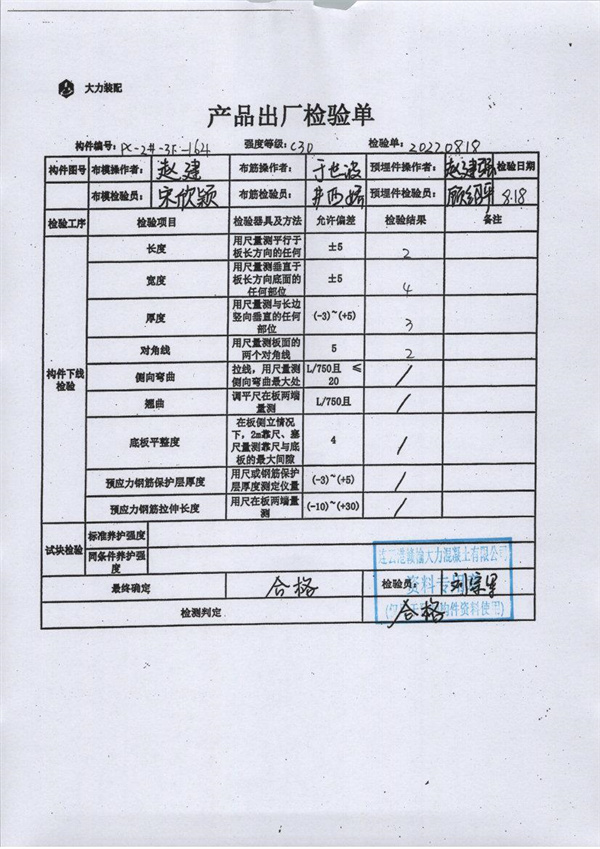 大力装配
产品出厂检验单
构件编号: PC-2#-3F-164 强度等级: C30 检验单: 20220818
构件图号 布模操作者: 赵建 布筋操作者: 于世波 预埋件操作者: 赵建 检验日期
布模检验员: 宋欣颖 布筋检验员: 预埋件检验员: 8.18
检验工序 检验项目 检验器具及方法 允许偏差 检验结果 备注
构件下线检验
长度 用尺量测平行于板长方向的任何 ±5 2
宽度 用尺量测垂直于板长方向底面的任何部位 ±5 4
厚度 用尺量测与长边竖向垂直的任何部位 (-3)~(+5) 3
对角线 用尺量测板面的两个对角线 5 2
侧向弯曲 拉线,用尺量测侧向弯曲最大处 L/750且 ≤20 /
翘曲 调平尺在板两端量测 L/750且 /
底板平整度 在板侧立情况下,2m靠尺、塞尺量测靠尺与底板的最大间隙 4 /
预应力钢筋保护层厚度 用尺或钢筋保护层厚度测定仪量 (-3)~(+5) /
预应力钢筋拉伸长度 用尺在板两端量测 (-10)~(+30) /
试块检验 标准养护强度
同条件养护强度
连云港赣榆大力混凝土有限公司
最终确定 合格 检验员:
资料专用
检测判定 合格
构件资料使用)